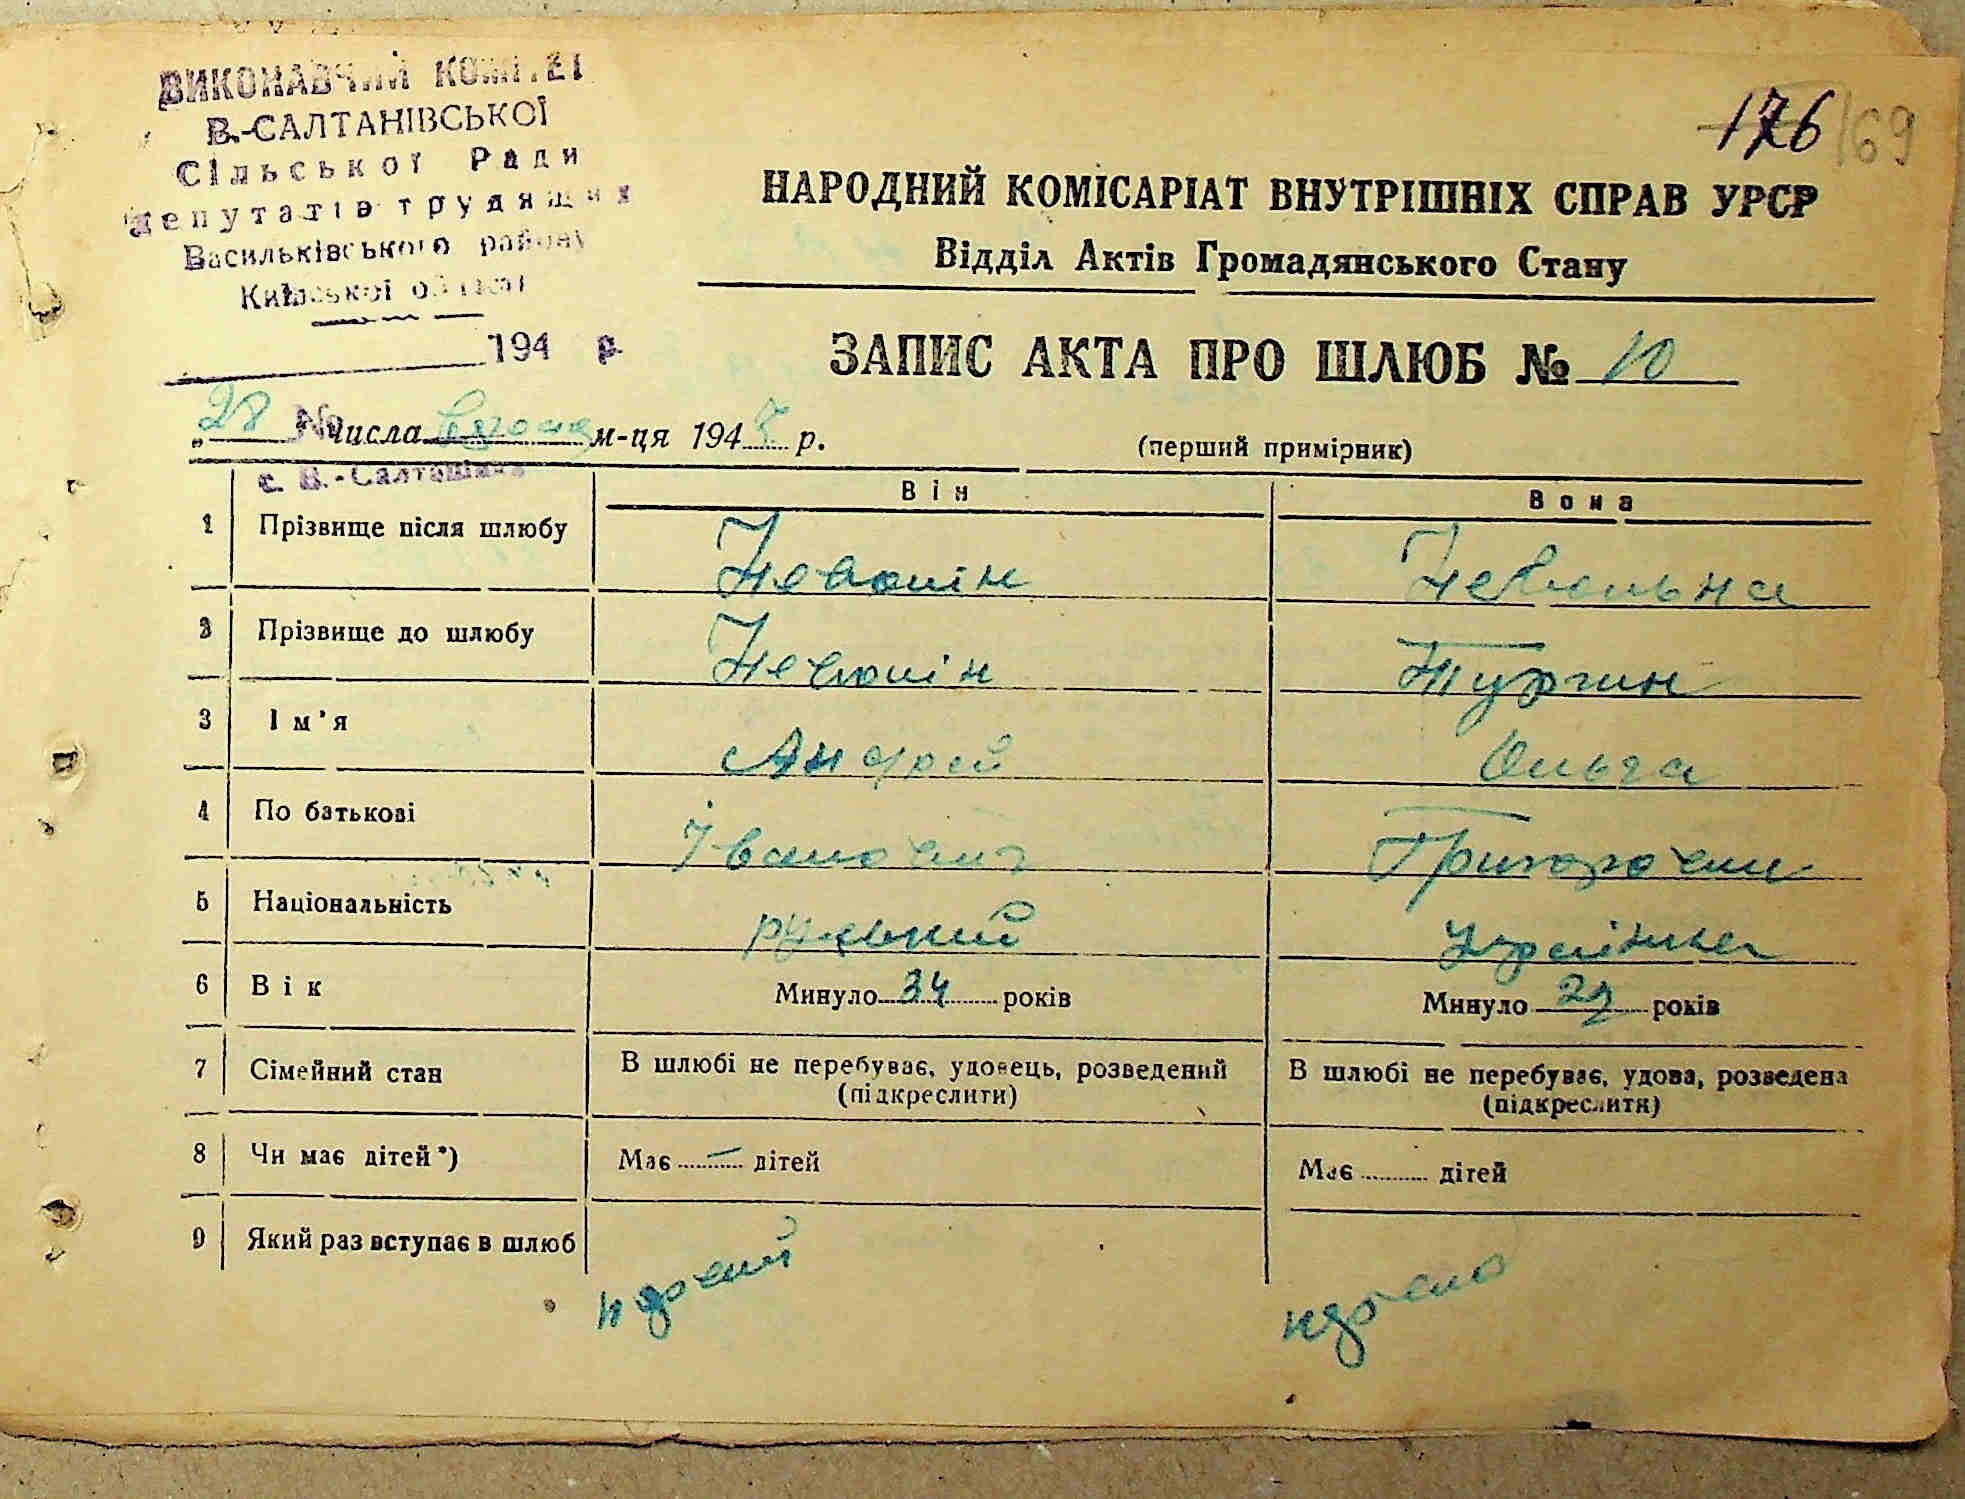 ВИКОНАВЧИЙ КОМІТЕТ
В.-САЛТАНІВСЬКОЇ
Сільської Ради
депутатів трудящих
Васильківського району
Київської області
194 р.
176 169
НАРОДНИЙ КОМІСАРІАТ ВНУТРІШНІХ СПРАВ УРСР
Відділ Актів Громадянського Стану
ЗАПИС АКТА ПРО ШЛЮБ № 10
„28 числа м-ця 194 р.
(перший примірник)
№
с. В.-Салтанівка
Він Вона
1 Прізвище після шлюбу
2 Прізвище до шлюбу
3 Ім'я Андрей Ольга
4 По батькові Іванович
5 Національність руський українка
6 Вік Минуло 34 років Минуло років
7 Сімейний стан В шлюбі не перебуває, удовець, розведений (підкреслити) В шлюбі не перебуває, удова, розведена (підкреслити)
8 Чи має дітей*) Має — дітей Має дітей
9 Який раз вступає в шлюб